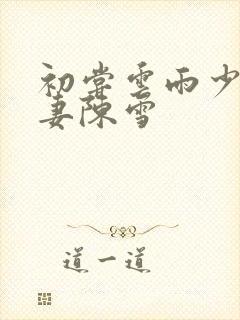 初尝雲雨少
妻陳雪
道一道